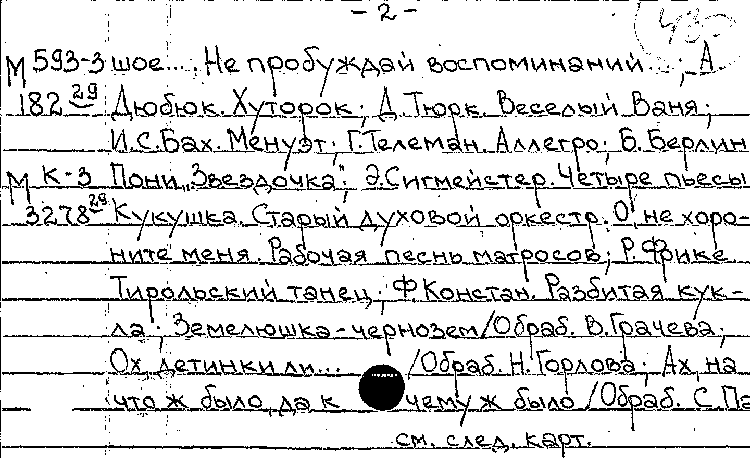 - 2 -
М 593-3 шое... Не пробуждай воспоминаний...; А.
182 29 Дюбюк. Хуторок; Д. Тюрк. Веселый Ваня;
И.С. Бах. Менуэт; Г. Телеман. Аллегро; Б. Берлин
М К-3 Пони „Звездочка"; Э. Сигмейстер. Четыре пьесы
3278 29 Кукушка. Старый духовой оркестр. О, не хоро-
ните меня. Рабочая песнь матросов; Р. Фрике
Тирольский танец; Ф. Констан. Разбитая кук-
ла; Земелюшка-чернозем /Обраб. В. Грачева;
Ох, детинки ли... /Обраб. Н. Горлова; Ах, на
что ж было, да к чему ж было /Обраб. С. Па
см. след. карт.